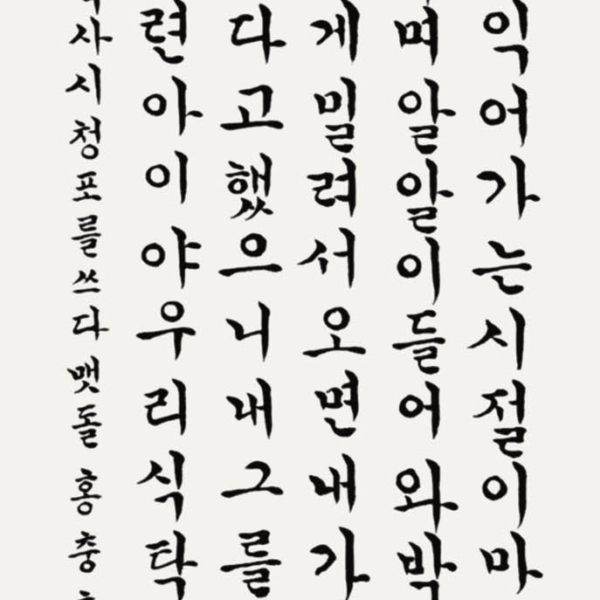 익어가는시절이마
며알알이들어와박
게밀려서오면내가
다고했으니내그를
련아이야우리식탁
사시청포를쓰다맷돌홍충